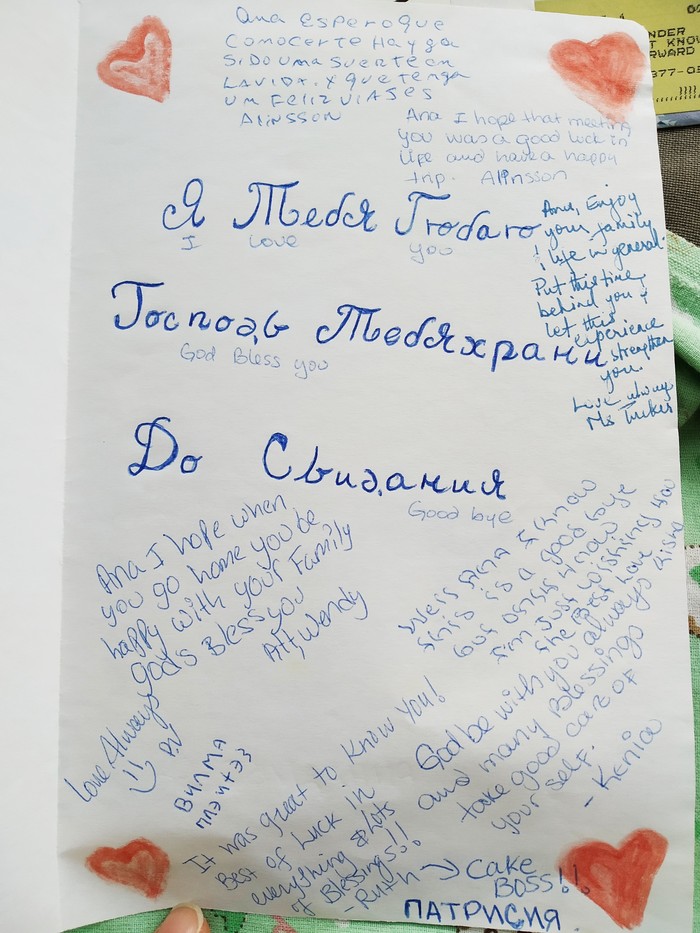 Ana espero que
Conocerte Hayga
sido uma suerte en
La vida. y que tenga
um Feliz viases
Alinsson
Ana I hope that meeting
you was a good luck in
life and have a happy
trip. Alinsson
NDER
T KNOW
RWARD
Я Тебя Люблю
I love you
Ana, Enjoy
your family
& life in general.
Put this time
behind you &
let this
experience
strengthen
you.
Love always
Ms
Господь Тебя храни
God Bless you
До Свидания
Good bye
Ana I hope when
you go home you be
happy with your Family
god's Bless you
Att, Wendy
Well Ana I know
this is a good bye
but don't know
I'm just wishing you
the Best Love
God be with you always
and many Blessings
take good care of
your self.
- Kenia
Love Always
ВИЛМА
It was great to Know You!
Best of Luck in
everything & lots
of Blessings!!
-Ruth → Cake
Boss!!
ПАТРИСИЯ